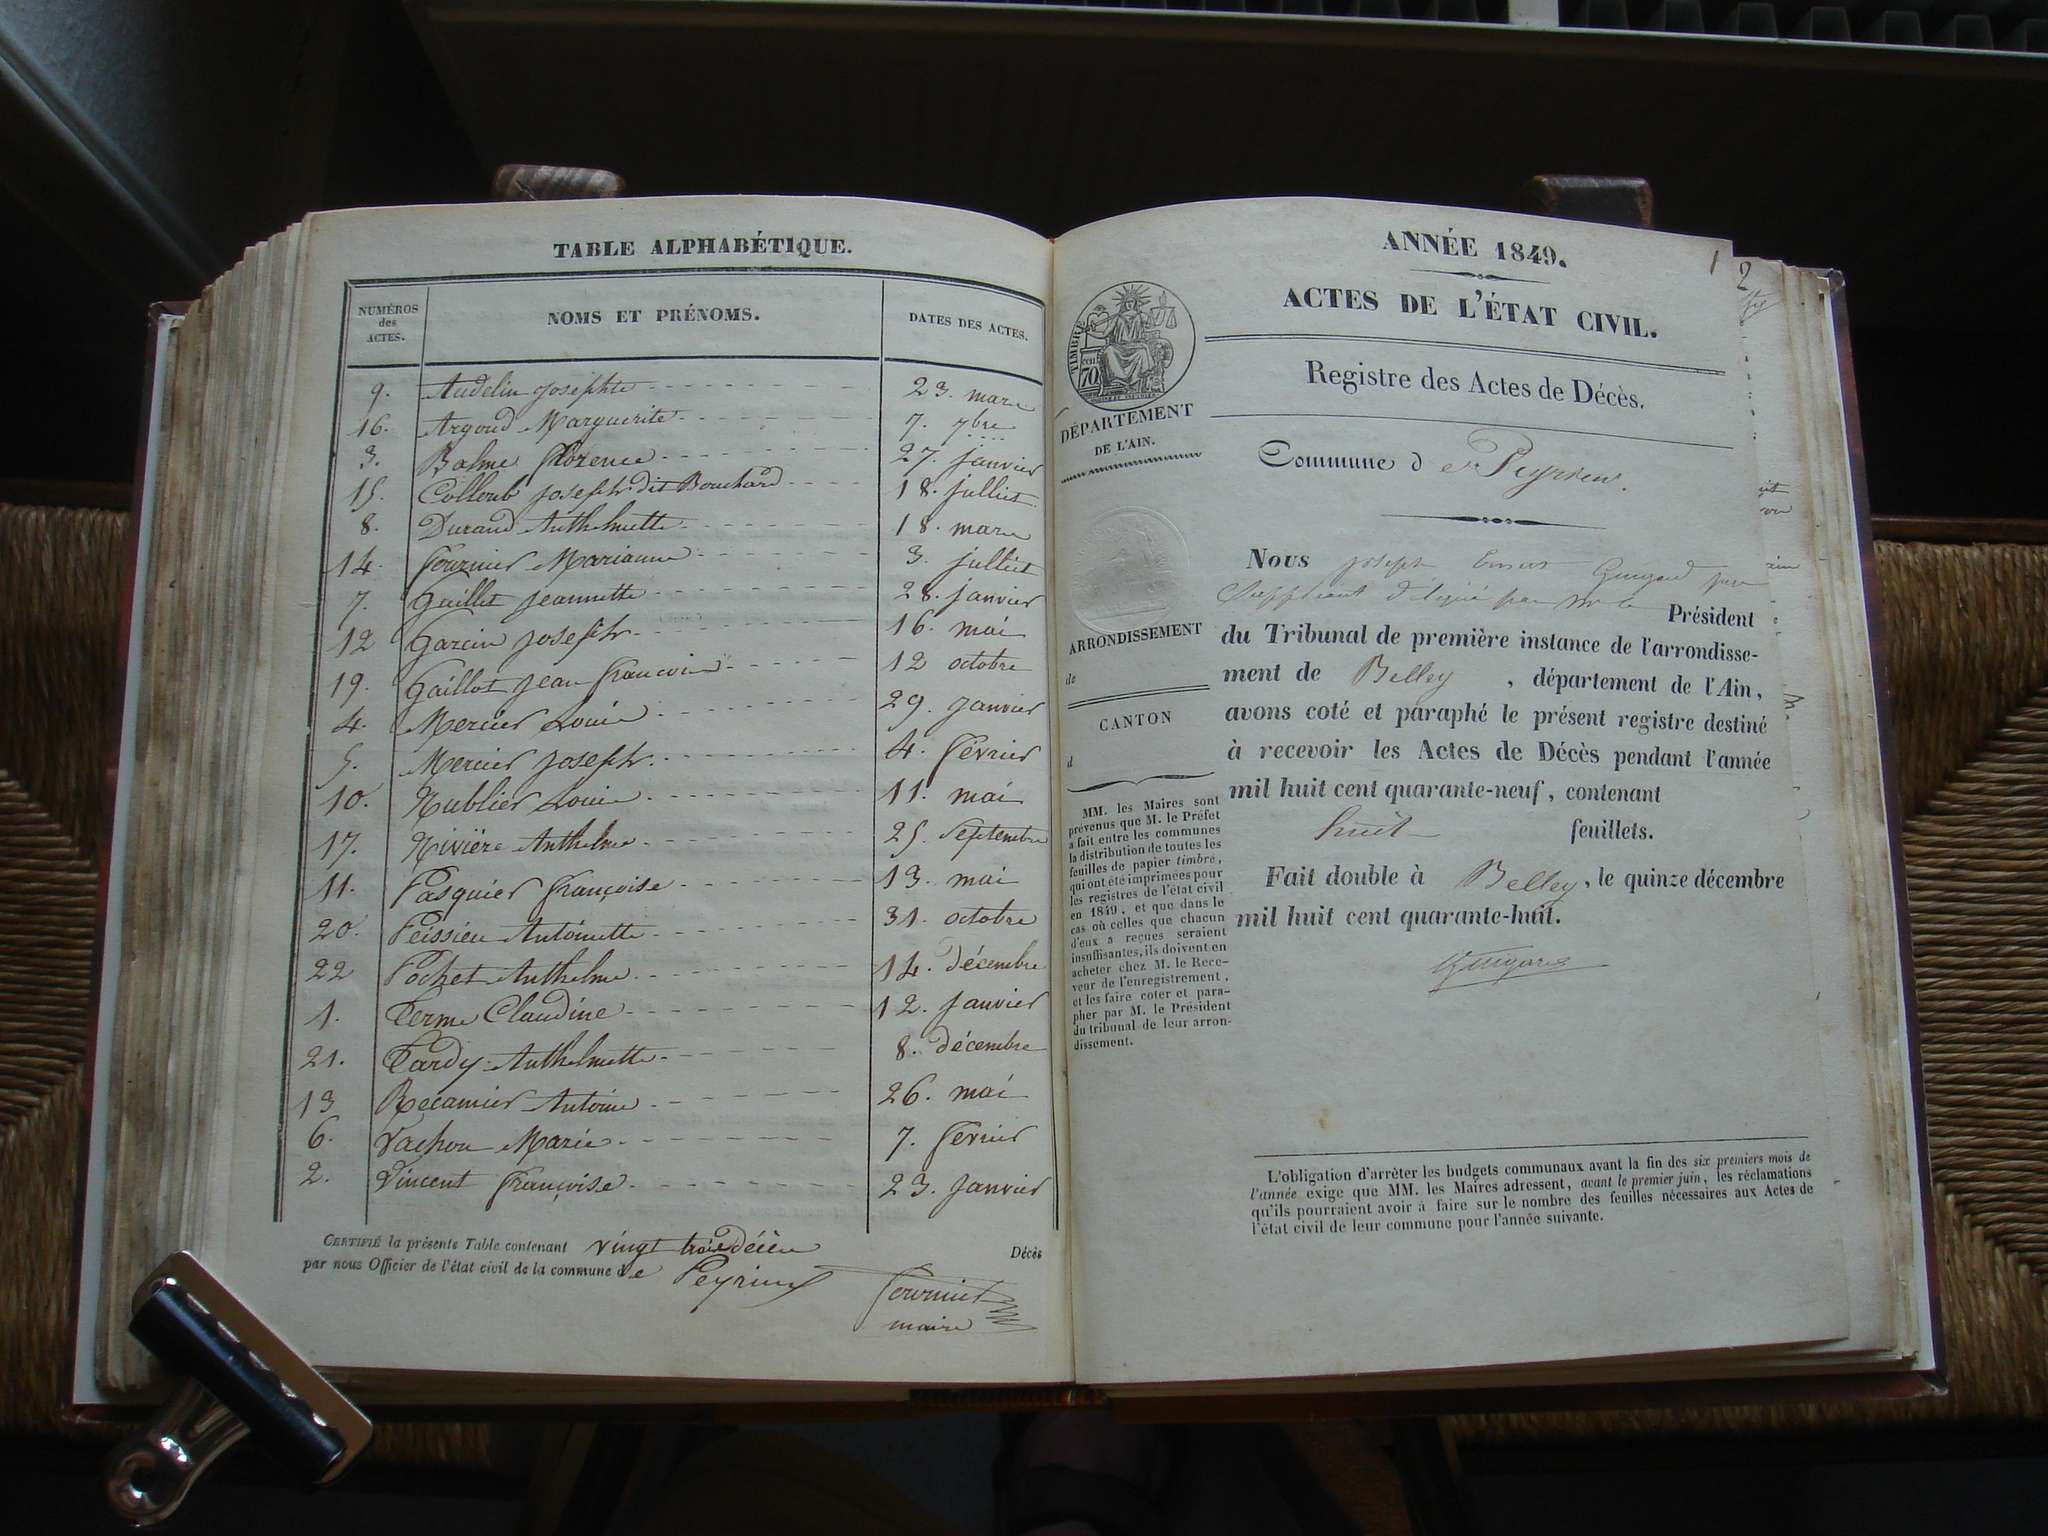 TABLE ALPHABÉTIQUE.
NUMÉROS des ACTES. NOMS ET PRÉNOMS. DATES DES ACTES.
9. Audelin Josephte 23. mars
16. Argoud Marguerite 7. 7bre
3. Balme Florence 27. janvier
15. Colloub joseph dit Bouchard 18. julliet
8. Durand Anthelmette 18. mars
14. Fournier Marianne 3. julliet
7. Guillet Jeannette 28. janvier
12 Garcin Joseph 16. mai
19. Gaillot Jean François 12 octobre
4. Mercier Louis 29. Janvier
5. Mercier Joseph 4. février
10. Nublier Louis 11. mai
17. Rivière Anthelme 25 Septembre
11. Pasquier Françoise 13. mai
20. Peissieu Antoinette 31. octobre
22 Pochet Anthelme 14. décembre
1. Terme Claudine 12. Janvier
21. Tardy Anthelmette 8. décembre
13 Récamier Antoine 26. mai
6. Vachon Marie 7. février
2. Vincent Françoise 23. Janvier
CERTIFIÉ la présente Table contenant vingt trois décès Décès
par nous Officier de l'état civil de la commune de Peyrieu
Fournier
maire
1 2
ANNÉE 1849.
ACTES DE L'ÉTAT CIVIL.
Registre des Actes de Décès.
TIMBRE
70
DÉPARTEMENT
DE L'AIN.
Commune de Peyrieu.
ARRONDISSEMENT
de
CANTON
d
MM. les Maires sont
prévenus que M. le Préfet
a fait entre les communes
la distribution de toutes les
feuilles de papier timbré,
qui ont été imprimées pour
les registres de l'état civil
en 1849, et que dans le
cas où celles que chacun
d'eux a reçues seraient
insuffisantes, ils doivent en
acheter chez M. le Rece-
veur de l'enregistrement,
et les faire coter et para-
pher par M. le Président
du tribunal de leur arron-
dissement.
Nous joseph Guigard juge
Suppléant délégué par Mr le Président
du Tribunal de première instance de l'arrondisse-
ment de Belley, département de l'Ain,
avons coté et paraphé le présent registre destiné
à recevoir les Actes de Décès pendant l'année
mil huit cent quarante-neuf, contenant
huit feuillets.
Fait double à Belley, le quinze décembre
mil huit cent quarante-huit.
Guigard
L'obligation d'arrêter les budgets communaux avant la fin des six premiers mois de
l'année exige que MM. les Maires adressent, avant le premier juin, les réclamations
qu'ils pourraient avoir à faire sur le nombre des feuilles nécessaires aux Actes de
l'état civil de leur commune pour l'année suivante.